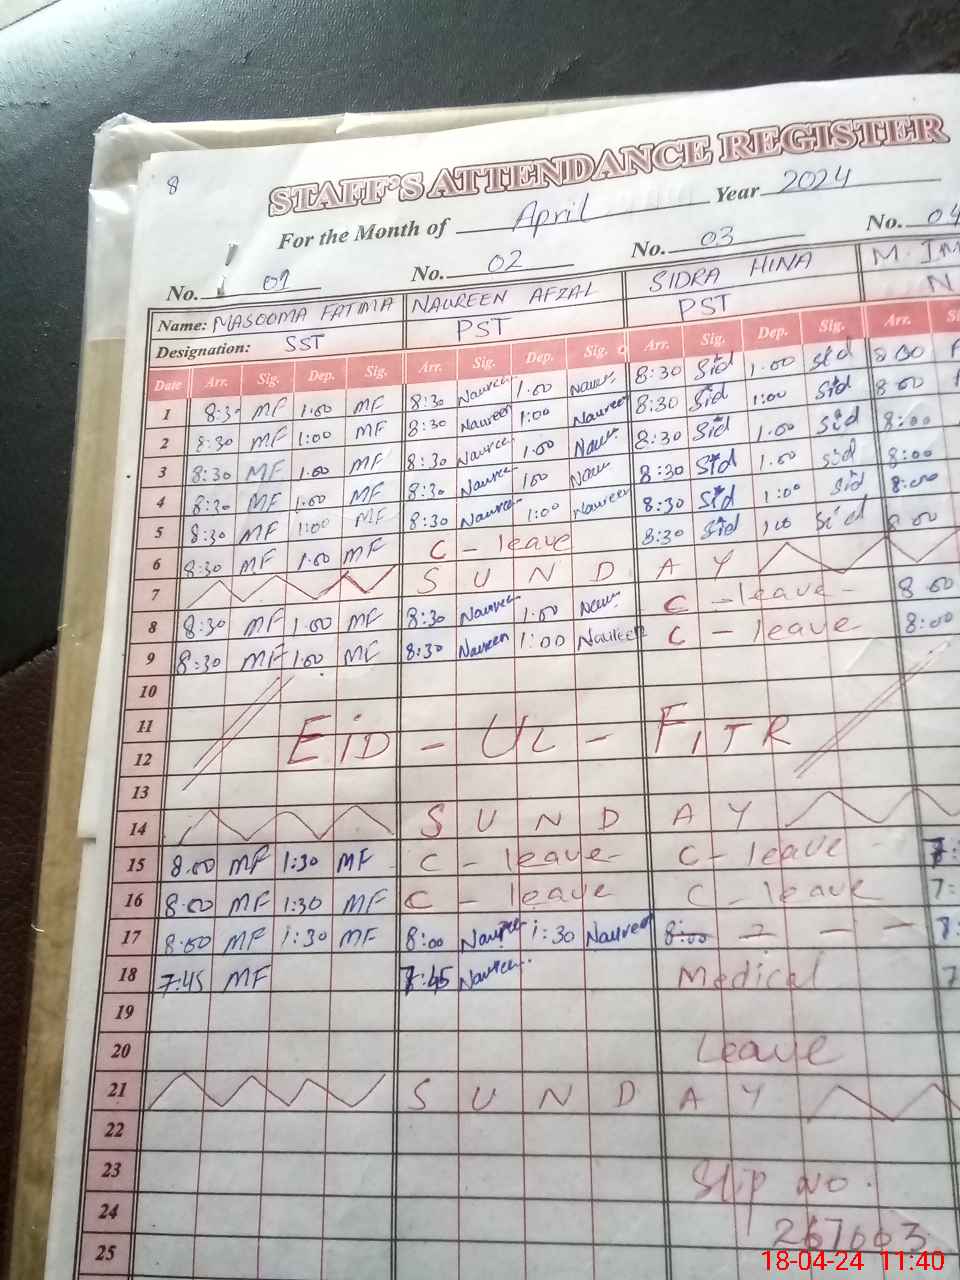 8
STAFF'S ATTENDANCE REGISTER
For the Month of April Year 2024
No. 01 No. 02 No. 03 No. 04
Name: MASOOMA FATMIA NAUREEN AFZAL SIDRA HINA M. IM
Designation: SST PST PST N
Date Arr. Sig. Dep. Sig. Arr. Sig. Dep. Sig. Arr. Sig. Dep. Sig. Arr. Si
1 8:3 MF 1.00 MF 8:30 Naureen 1.00 Naur. 8:30 Sid 1.00 Sid 8:00
2 8:30 MF 1:00 MF 8:30 Naureen 1:00 Naureen 8:30 Sid 1:00 Sid 8:00
3 8:30 MF 1.00 MF 8:30 Naureen 1.00 Naur. 8:30 Sid 1.00 Sid 8:00
4 8:30 MF 1.00 MF 8:30 Naureen 1:00 Naur 8:30 Sid 1.00 Sid 8:00
5 8:30 MF 1:00 MF 8:30 Naureen 1:00 Naureen 8:30 Sid 1:00 Sid 8:00
6 8:30 MF 1.00 MF C - leave 8:30 Sid 1:00 Sid 8:00
7 S U N D A Y
8 8:30 MF 1.00 MF 8:30 Naureen 1:00 Naur. C - leave - 8:00
9 8:30 MF 1.00 MF 8:30 Naureen 1:00 Naureen C - leave 8:00
10
11
EID - UL - FITR
12
13
14 S U N D A Y
15 8.00 MF 1:30 MF C - leave - C - leave 7:
16 8:00 MF 1:30 MF C - leave C - leave 7:
17 8:00 MF 1:30 MF 8:00 Naureen 1:30 Naureen 8:00 - - - 8:
18 7:45 MF 7:45 Naureen Medical 7
19
20 Leave
21 S U N D A Y
22
23 Slip No.
24 267663
25
18-04-24 11:40